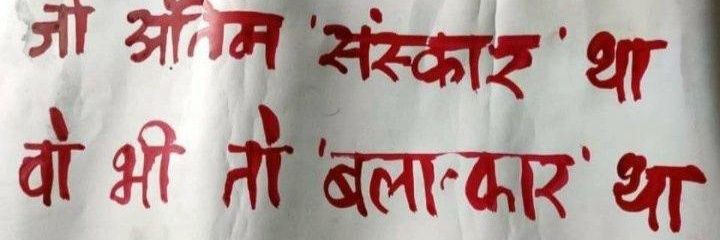 जो अंतिम 'संस्कार' था
वो भी तो 'बलात्कार' था